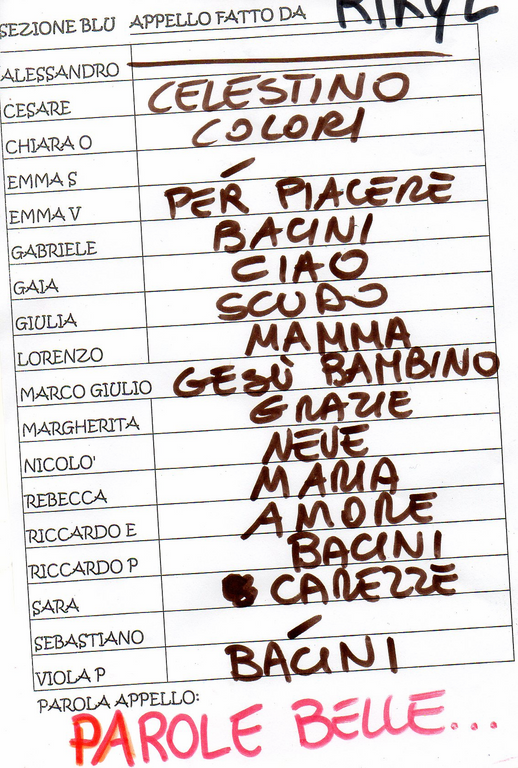 SEZIONE BLU APPELLO FATTO DA
ALESSANDRO
CESARE CELESTINO
CHIARA O COLORI
EMMA S
EMMA V PER PIACERE
GABRIELE BACINI
GAIA CIAO
GIULIA SCUDO
LORENZO MAMMA
MARCO GIULIO GESÙ BAMBINO
MARGHERITA GRAZIE
NICOLO' NEVE
REBECCA MARIA
RICCARDO E AMORE
RICCARDO P BACINI
SARA CAREZZE
SEBASTIANO
VIOLA P BACINI
PAROLA APPELLO:
PAROLE BELLE...